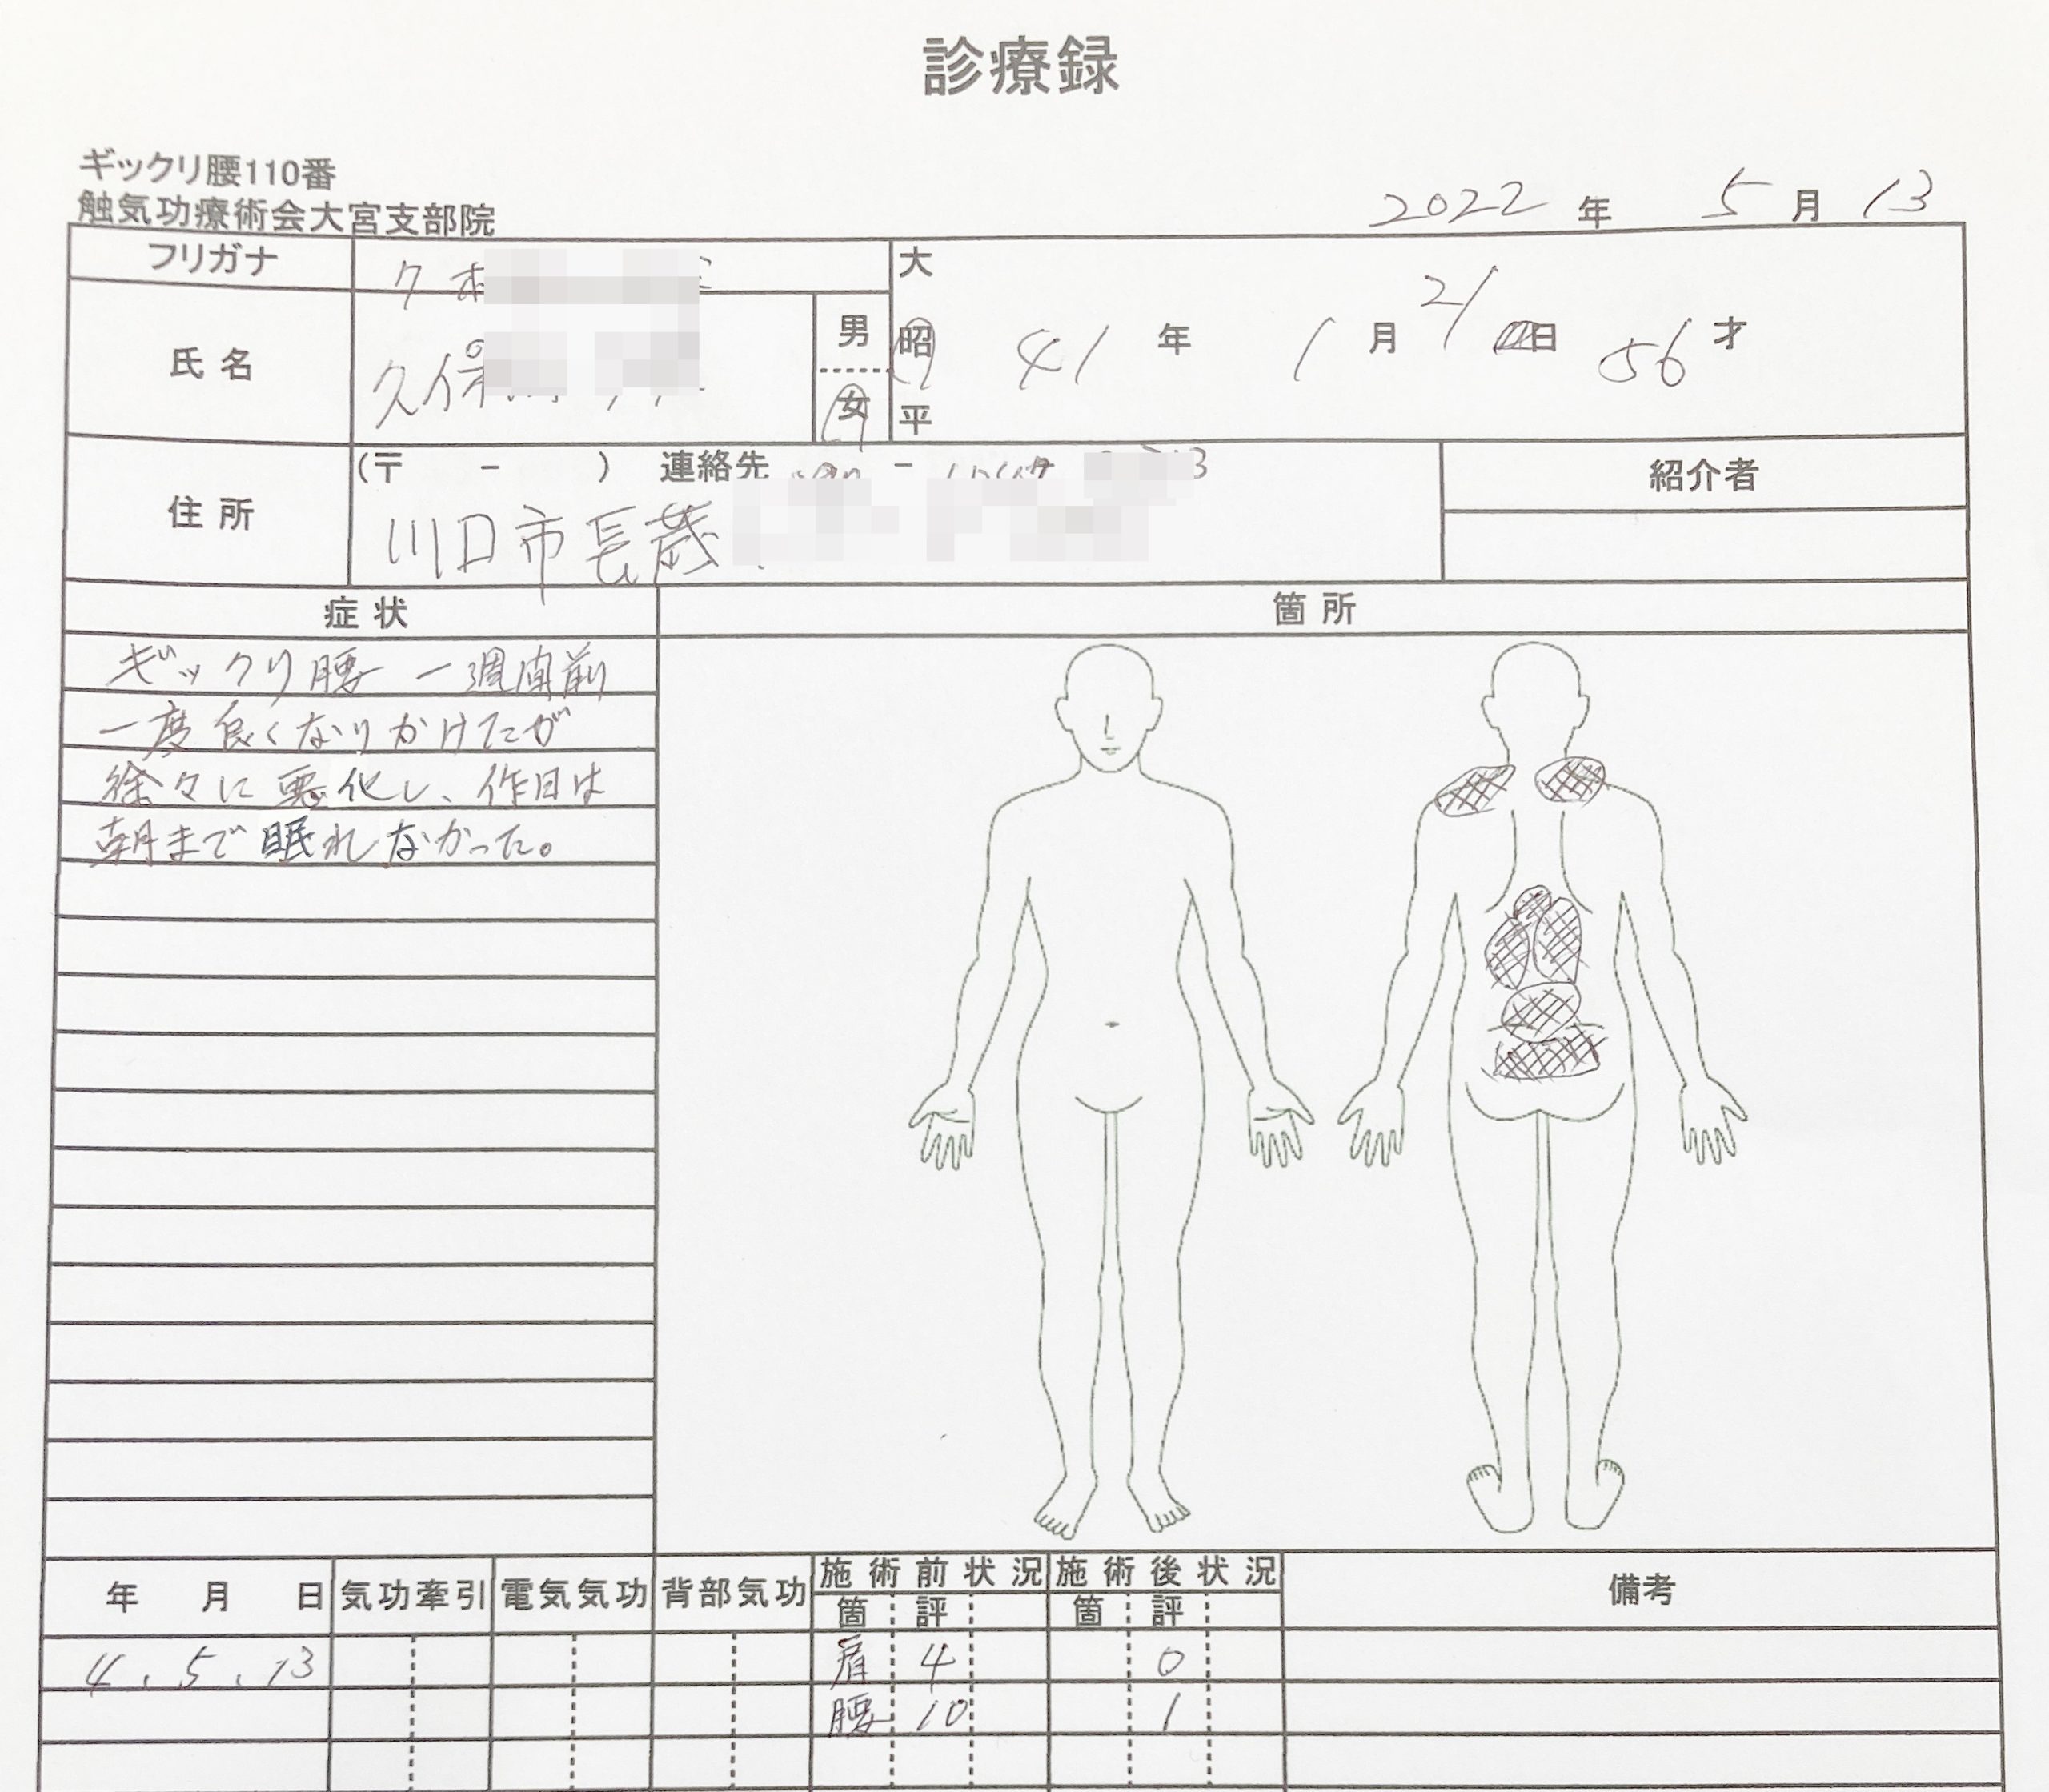 診療録
ギックリ腰110番
触気功療術会大宮支部院
2022 年 5 月 13
フリガナ クボ
大
氏名 久保
男
女
昭
平
41 年 1 月 21 日 56 才
住所
(〒 - ) 連絡先 -
川口市長蔵
紹介者
症状
箇所
ギックリ腰 一週间前
一度良くなりかけたが
徐々に悪化し、作日は
朝まで眠れなかった。
年 月 日 気功牽引 電気気功 背部気功 施術前状況 施術後状況 備考
箇 評 箇 評
4.5.13 肩 4 0
腰 10 1